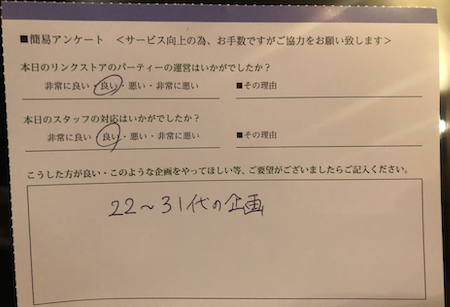 ■簡易アンケート ＜サービス向上の為、お手数ですがご協力をお願い致します＞
本日のリンクストアのパーティーの運営はいかがでしたか？
非常に良い・良い・悪い・非常に悪い ■その理由
本日のスタッフの対応はいかがでしたか？
非常に良い・良い・悪い・非常に悪い ■その理由
こうした方が良い・このような企画をやってほしい等、ご要望がございましたらご記入ください。
22～31代の企画